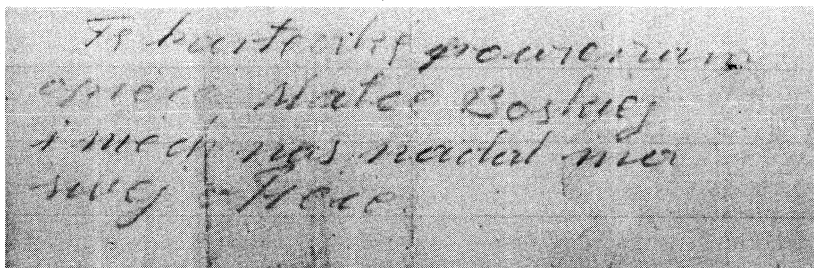 Tę karteczkę powierzam
opiece Matce Boskiej
i niech nas nadal ma
swej